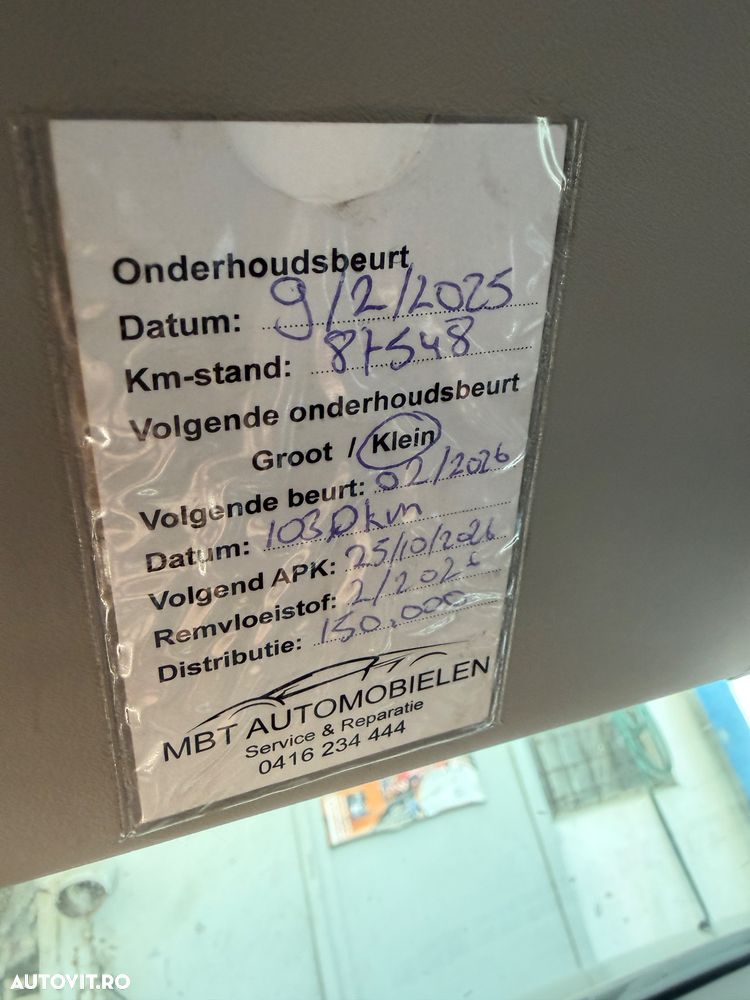 Onderhoudsbeurt
Datum: 9/2/2025
Km-stand: 87548
Volgende onderhoudsbeurt
Groot / Klein
Volgende beurt: 02/2026
Datum: km
Volgend APK: 25/10/2026
Remvloeistof:
Distributie: 150.000
MBT AUTOMOBIELEN
Service & Reparatie
0416 234 444
AUTOVIT.RO